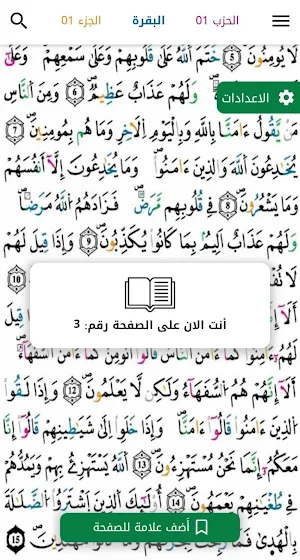 الحزب 01
البقرة
الجزء 01
لَا يُومِنُونَ 5 خَتَمَ اَللَّهُ عَلَىٰ قُلُوبِهِمْ وَعَلَىٰ سَمْعِهِمْ وَعَلَىٰ
وَلَهُمْ عَذَابٌ عَظِيمٌ 6 وَمِنَ اَلنَّاسِ
الاعدادات
مَنْ يَّقُولُ ءَامَنَّا بِاللَّهِ وَبِالْيَوْمِ اِلَاخِرِ وَمَا هُم بِمُومِنِينَ 7
يُخَٰدِعُونَ اَللَّهَ وَالذِينَ ءَامَنُواْ وَمَا يُخَٰدِعُونَ إِلَّآ أَنفُسَهُمْ
وَمَا يَشْعُرُونَ 8 فِي قُلُوبِهِم مَّرَضٌ فَزَادَهُمُ اُللَّهُ مَرَضًا
وَلَهُمْ عَذَابٌ اَلِيمٌ بِمَا كَانُواْ يُكَذِّبُونَ 9 وَإِذَا قِيلَ لَهُمْ
10
أنت الان على الصفحة رقم: 3
لَهُمُۥٓ ءَامِنُواْ كَمَآ ءَامَنَ اَلنَّاسُ قَالُوٓاْ أَنُومِنُ كَمَآ ءَامَنَ اَلسُّفَهَآءُ
أَلَآ إِنَّهُمْ هُمُ اُلسُّفَهَآءُ وَلَٰكِن لَّا يَعْلَمُونَ 12 وَإِذَا لَقُواْ
اُلذِينَ ءَامَنُواْ قَالُوٓاْ ءَامَنَّا وَإِذَا خَلَوِاْ اِلَىٰ شَيَٰطِينِهِمْ قَالُوٓاْ إِنَّا
مَعَكُمُۥٓ إِنَّمَا نَحْنُ مُسْتَهْزِءُونَ 13 اَللَّهُ يَسْتَهْزِئُ بِهِمْ وَيَمُدُّهُمْ
فِي طُغْيَٰنِهِمْ يَعْمَهُونَ 14 أُوْلَٰٓئِكَ اَلذِينَ اَشْتَرَوُاْ اُلضَّلَٰلَةَ
بِالْهُدَىٰ 15
أضف علامة للصفحة